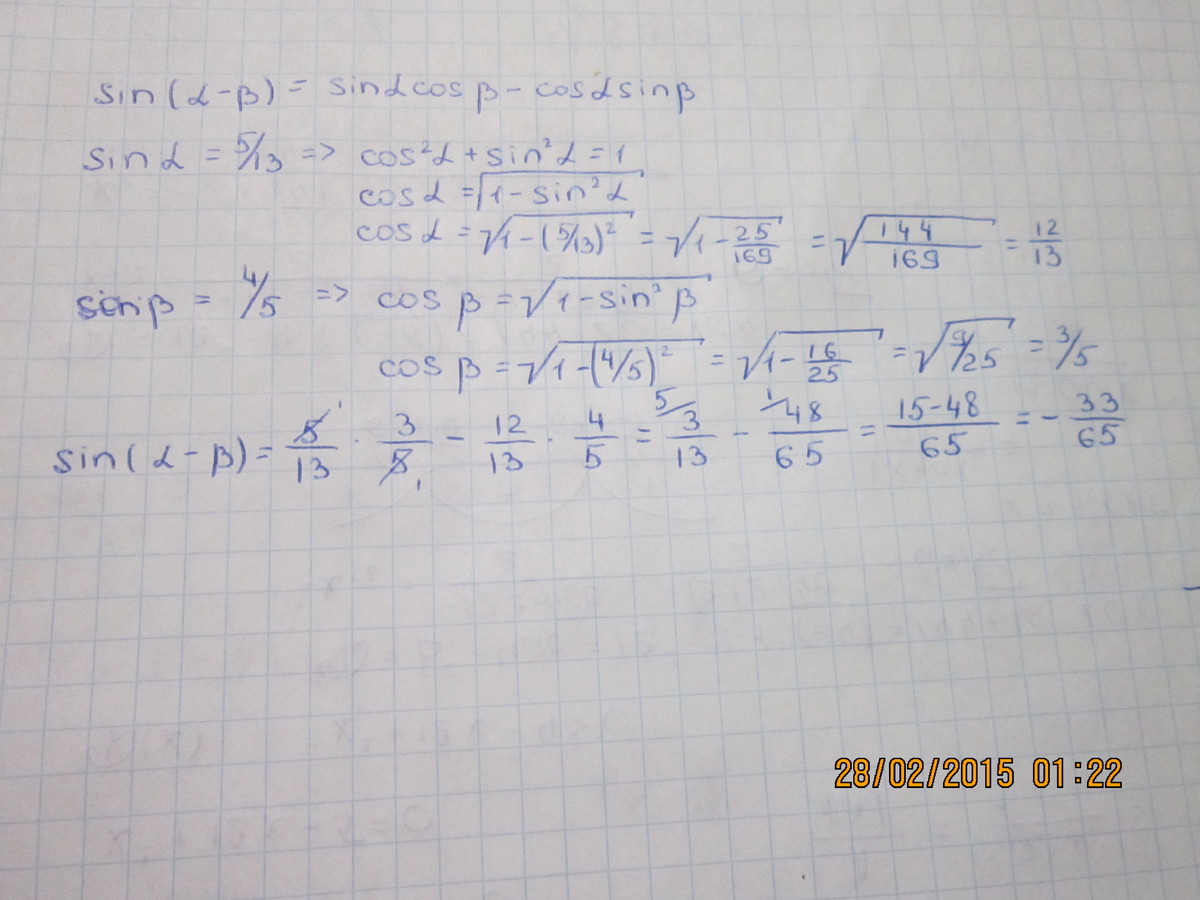 sin(α-β) = sinαcosβ - cosαsinβ
sinα = 5/13 => cos²α + sin²α = 1
cosα = √1 - sin²α
cosα = √1-(5/13)² = √1-25/169 = √144/169 = 12/13
sinβ = 4/5 => cosβ = √1-sin²β
cosβ = √1-(4/5)² = √1-16/25 = √9/25 = 3/5
sin(α-β) = 5¹/13 · 3/5₁ - 12/13 · 4/5 = ⁵/3/13 - ¹/48/65 = 15-48/65 = -33/65
28/02/2015 01:22